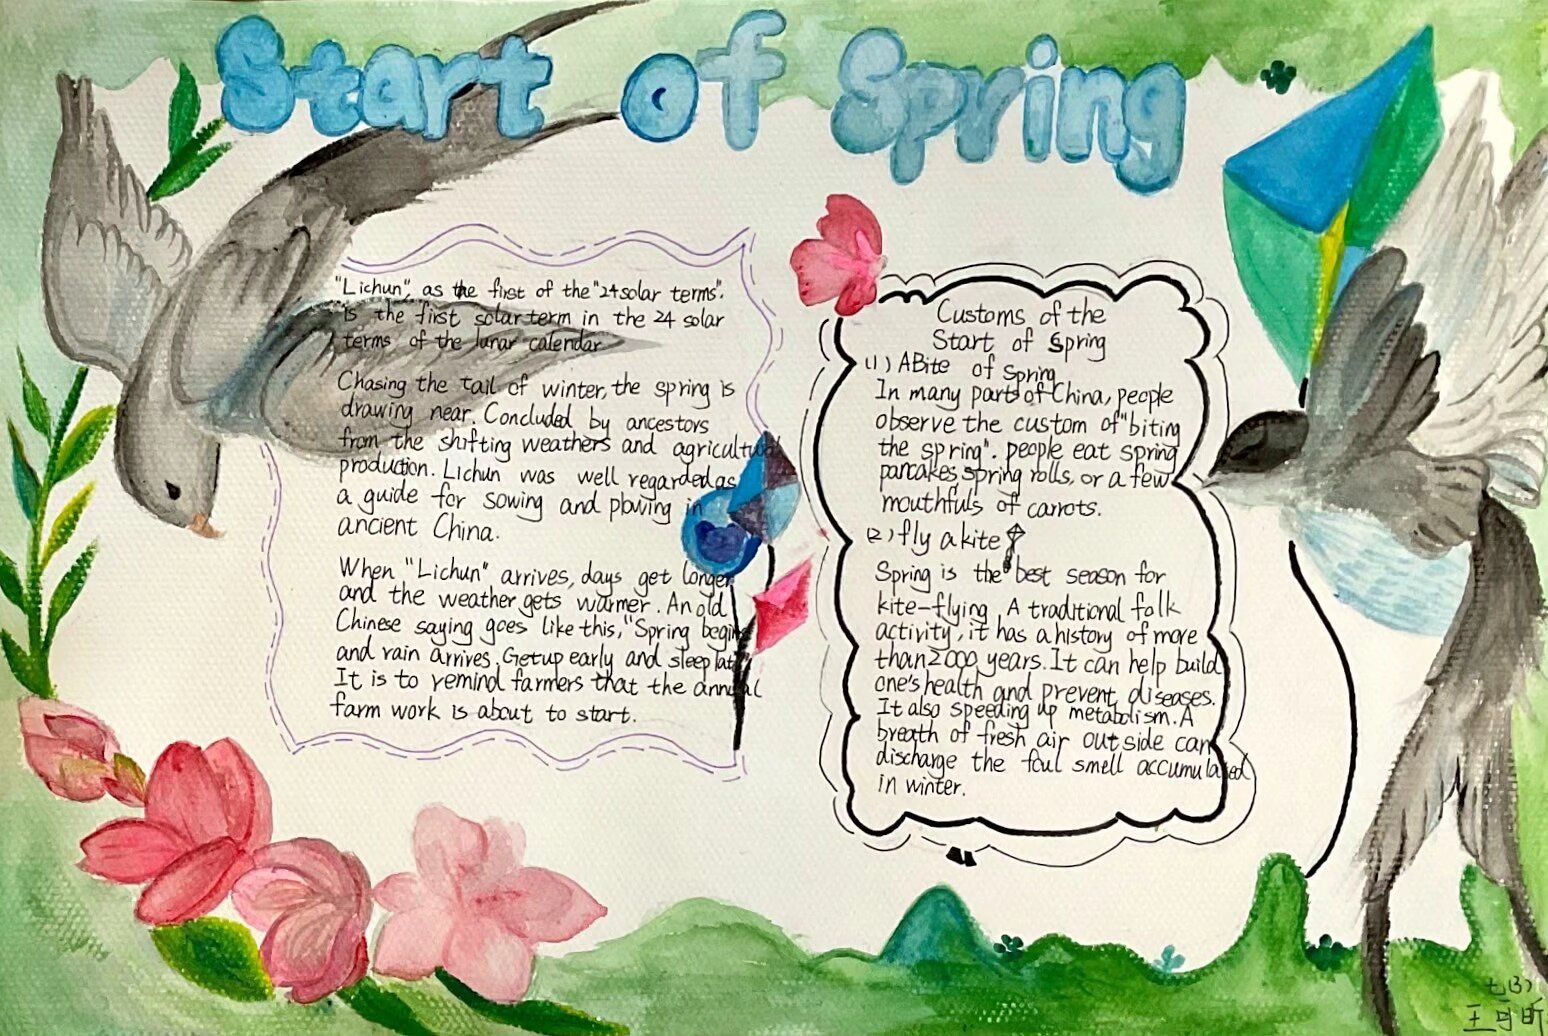 Start of Spring
"Lichun", as the first of the "24 solar terms".
is the first solar term in the 24 solar
terms of the lunar calendar
Chasing the tail of winter, the spring is
drawing near. Concluded by ancestors
from the shifting weathers and agricultural
production. Lichun was well regarded as
a guide for sowing and plowing in
ancient China.
When "Lichun" arrives, days get longer
and the weather gets warmer. An old
Chinese saying goes like this, "Spring begins
and rain arrives. Get up early and sleep late
It is to remind farmers that the annual
farm work is about to start.
Customs of the
Start of Spring
(1) A Bite of Spring
In many parts of China, people
observe the custom of "biting
the spring". people eat spring
pancakes, spring rolls, or a few
mouthfuls of carrots.
(2) fly a kite
Spring is the best season for
kite-flying. A traditional folk
activity, it has a history of more
than 2000 years. It can help build
one's health and prevent diseases.
It also speeding up metabolism. A
breath of fresh air outside can
discharge the foul smell accumulated
in winter.
七(3)
王可昕